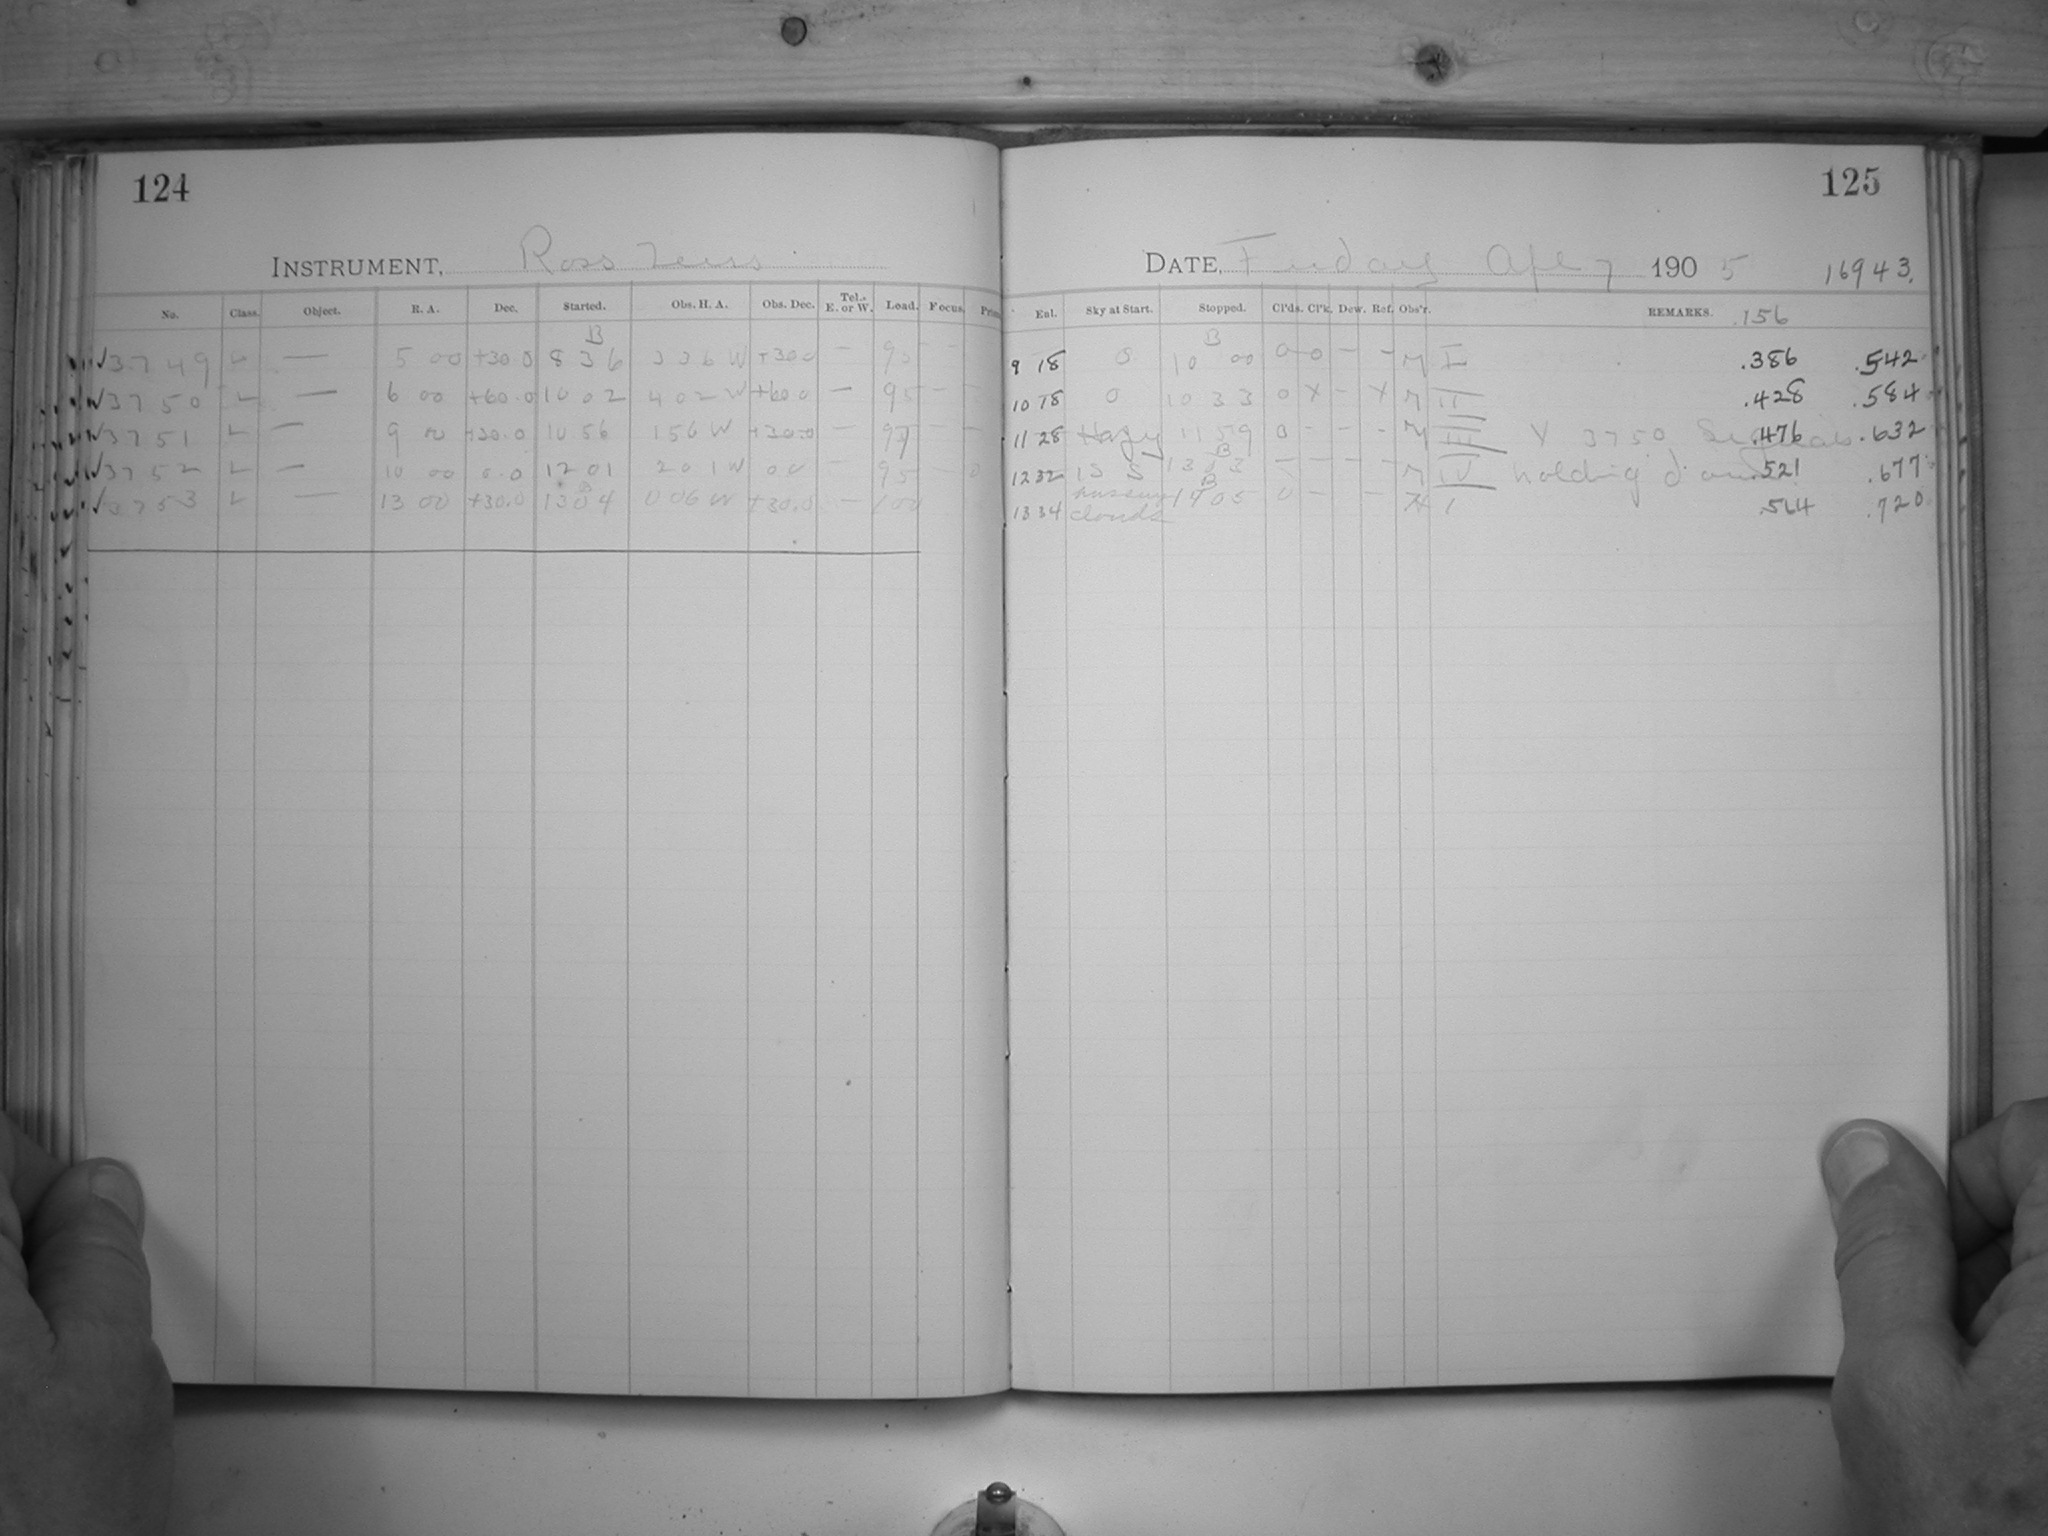 124
INSTRUMENT, Ross Lens
No. Class. Object. R. A. Dec. Started. Obs. H. A. Obs. Dec. Tel. E. or W. Load. Focus.
B
√3749 L — 5 00 +30.0 8 36 3 36 W +30.0 — 95 — —
√3750 L — 6 00 +60.0 10 02 4 02 W +60.0 — 95 — —
√3751 L — 9 00 +30.0 10 56 1 56 W +30.0 — 97 — —
√3752 L — 10 00 0.0 12 01 2 01 W 0 0 — 95 —
B
√3753 L — 13 00 +30.0 13 04 0 06 W +30.0 — 100
125
DATE, Friday Apl 7 1905 16943.
Eal. Sky at Start. Stopped. Cl'ds. Cl'k. Dew. Ref. Obs'r. REMARKS. .156
B
9 18 0 10 00 0 0 — — M I .386 .542
10 18 0 10 33 0 X — X M II .428 .584
11 28 Hazy 11 59 0 - - - M III X 3750 .476 .632
B
12 32 13 03 — — — M IV holding .521 .677
B
13 34 clouds 14 05 0 — — I .564 .720